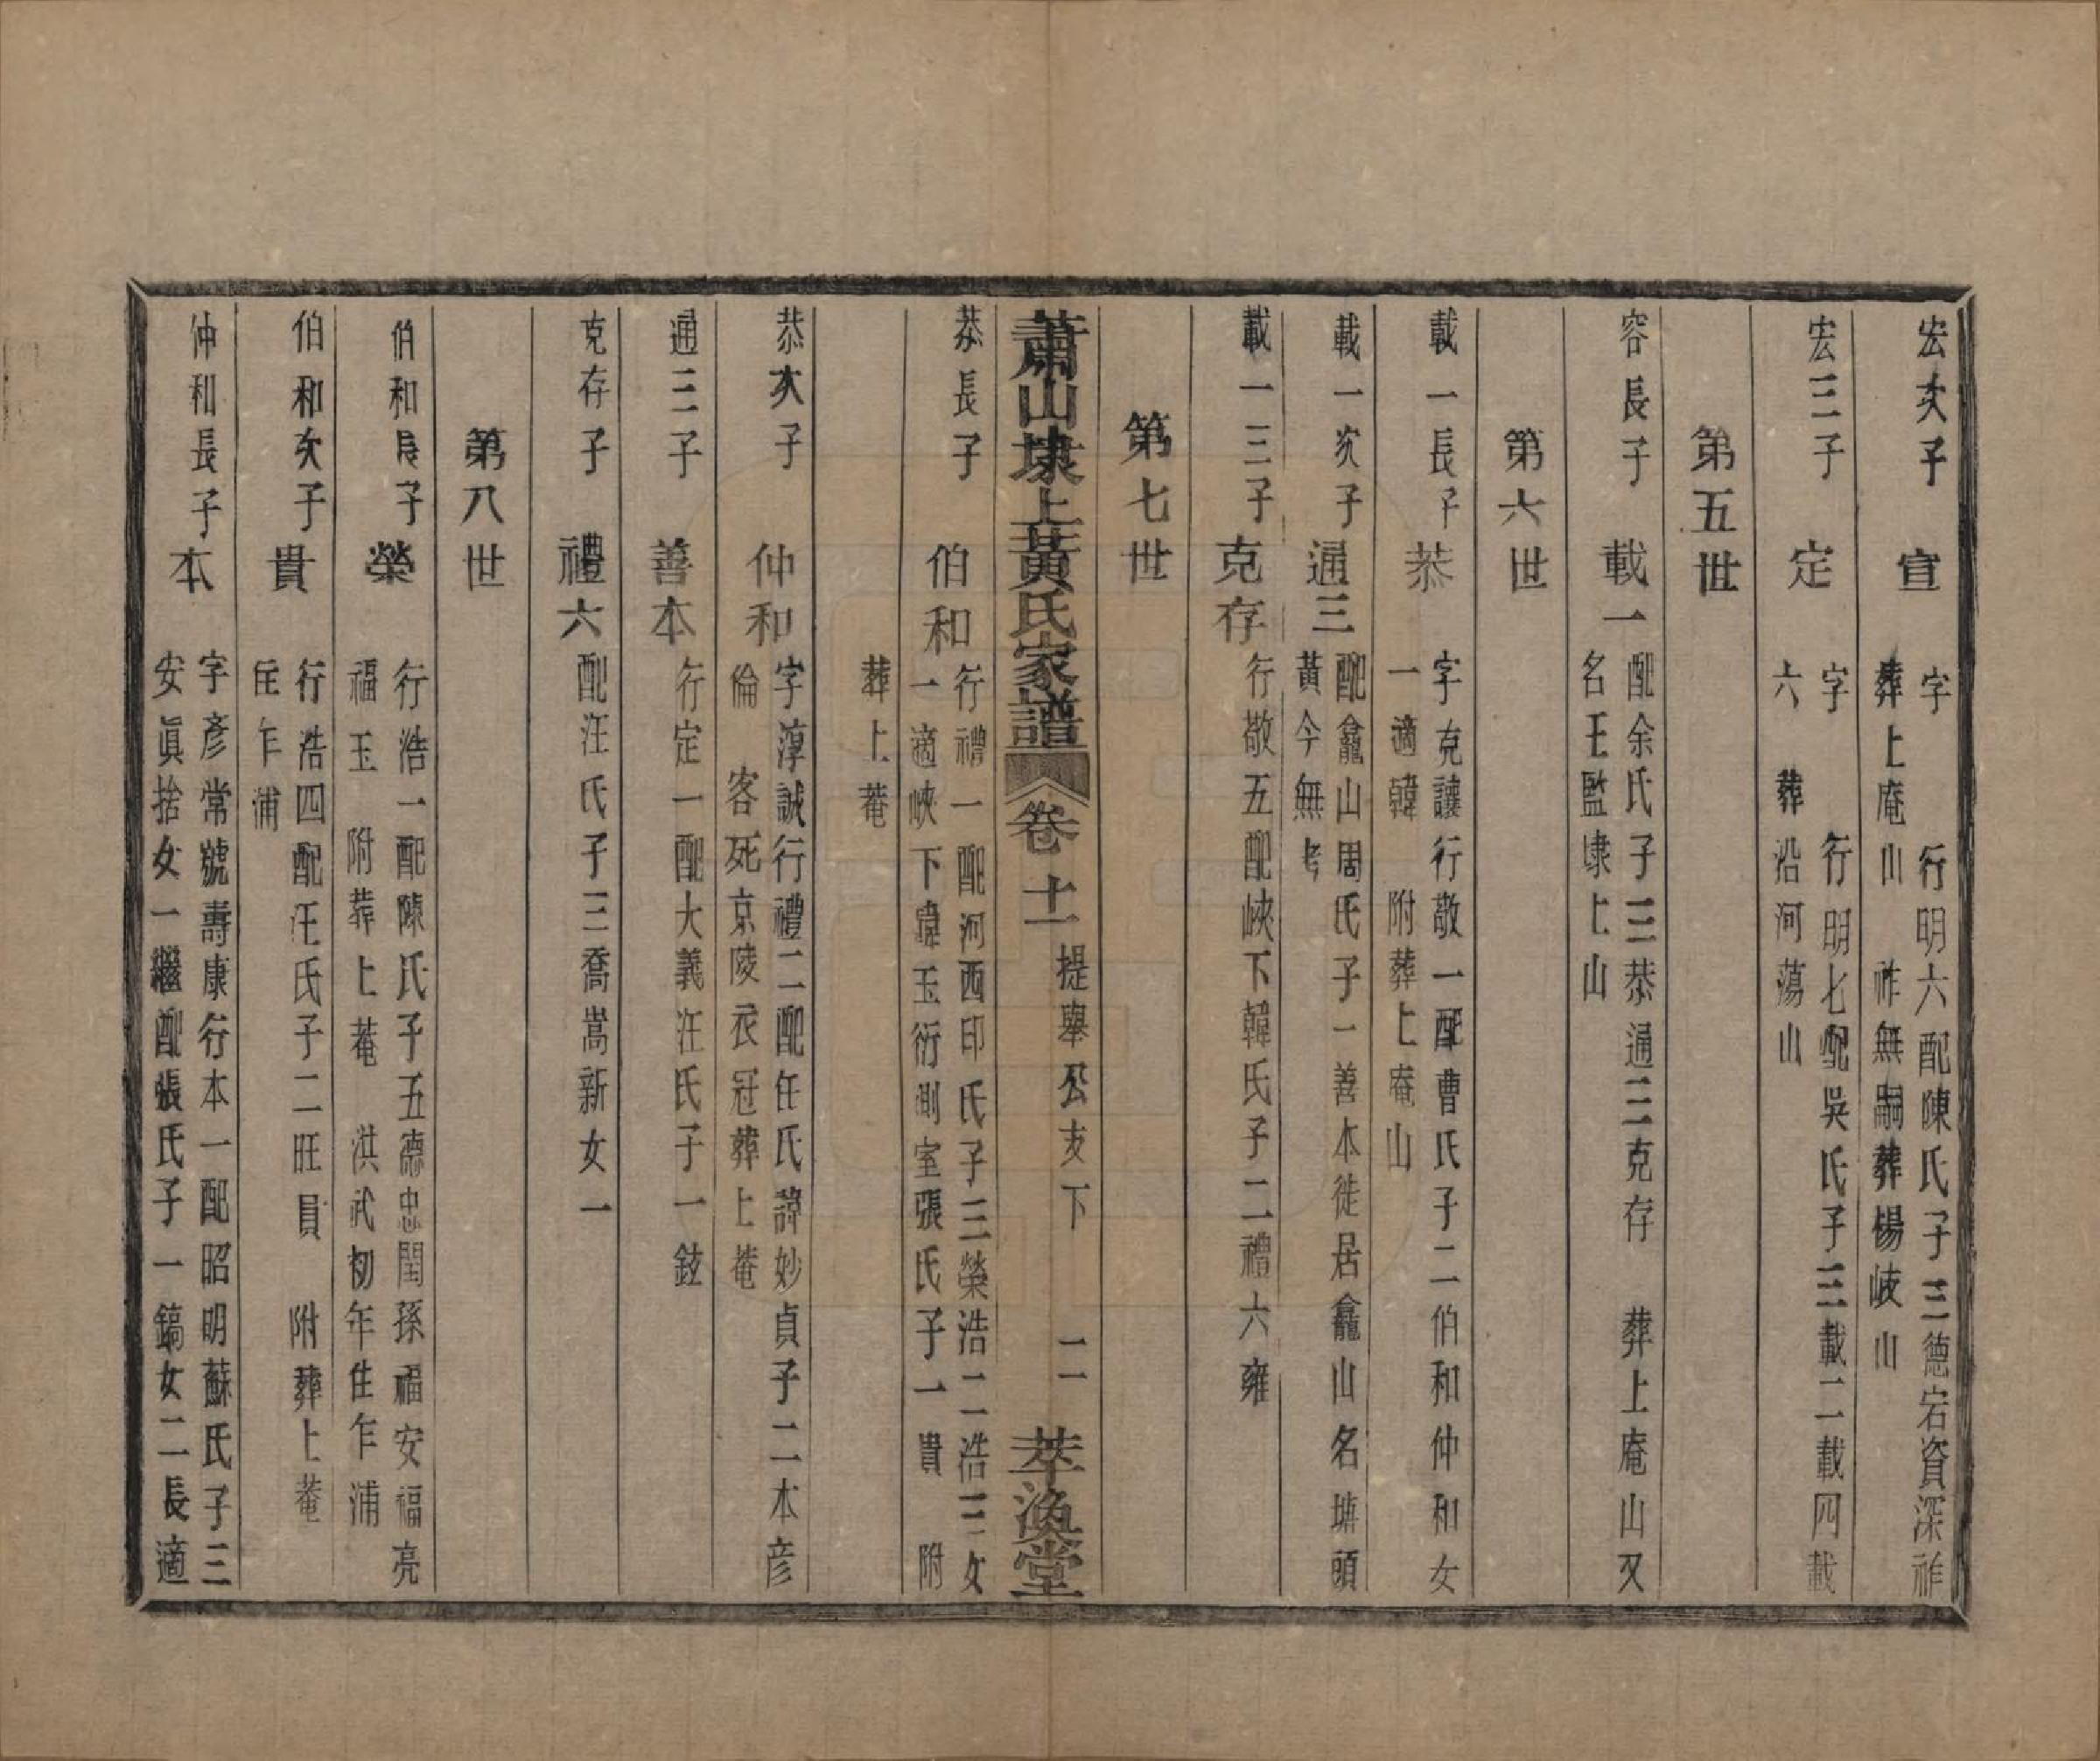 宏次子　宣　字　行明六配陳氏子三德岩資深祚
葬上庵山　祚無嗣葬楊岐山
宏三子　定　字　行明七配吳氏子三載二載四載
六　葬沿河蕩山
第五世
容長子　載一　配余氏子三恭通三克存　葬上庵山又
名王監埭上山
第六世
載一長子　恭　字克讓行敬一配曹氏子二伯和仲和女
一適韓　附葬上庵山
載一次子　通三　配龕山周氏子一善本徙居龕山名塘頭
黃今無考
載一三子　克存　行敬五配峽下韓氏子二禮六雍
第七世
蕭山埭上黃氏家譜　卷十一　提舉公支下　二　萃渙堂
恭長子　伯和　行禮一配河西印氏子三榮浩二浩三女
一適峽下韓玉衍側室張氏子一貴　附
葬上菴
恭次子　仲和　字淳誠行禮二配任氏諱妙貞子二本彥
倫　客死京陵衣冠葬上菴
通三子　善本　行定一配大義汪氏子一鉉
克存子　禮六　配汪氏子三喬嵩新女一
第八世
伯和長子　榮　行浩一配陳氏子五德忠閏孫福安福亮
福玉　附葬上菴　洪武初年住乍浦
伯和次子　貴　行浩四配汪氏子二旺員　附葬上菴
住乍浦
仲和長子　本　字彥常號壽康行本一配昭明蘇氏子三
安眞捨女一繼配張氏子一鎬女二長適